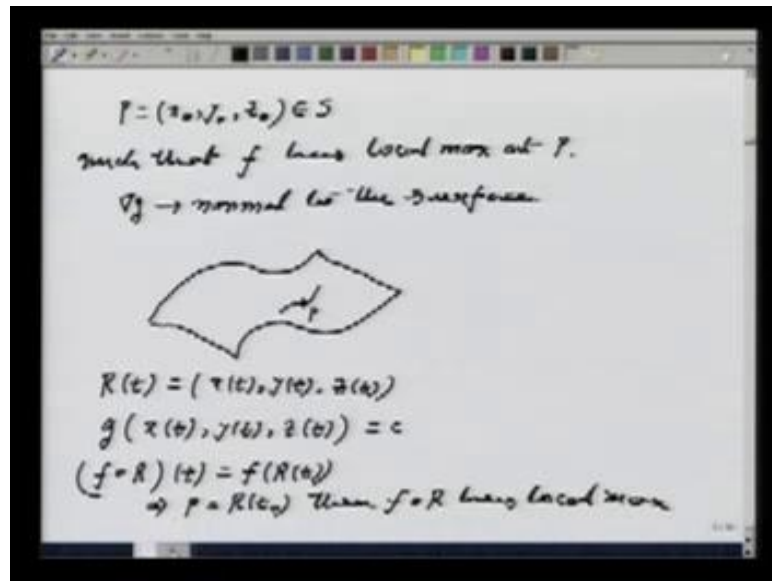 P = (x₀, y₀, z₀) ∈ S
such that f has local max at P.
∇g → normal to the surface
P
R(t) = (x(t), y(t), z(t))
g(x(t), y(t), z(t)) = c
(f∘R)(t) = f(R(t))
⇒ P = R(t₀) then f∘R has local max